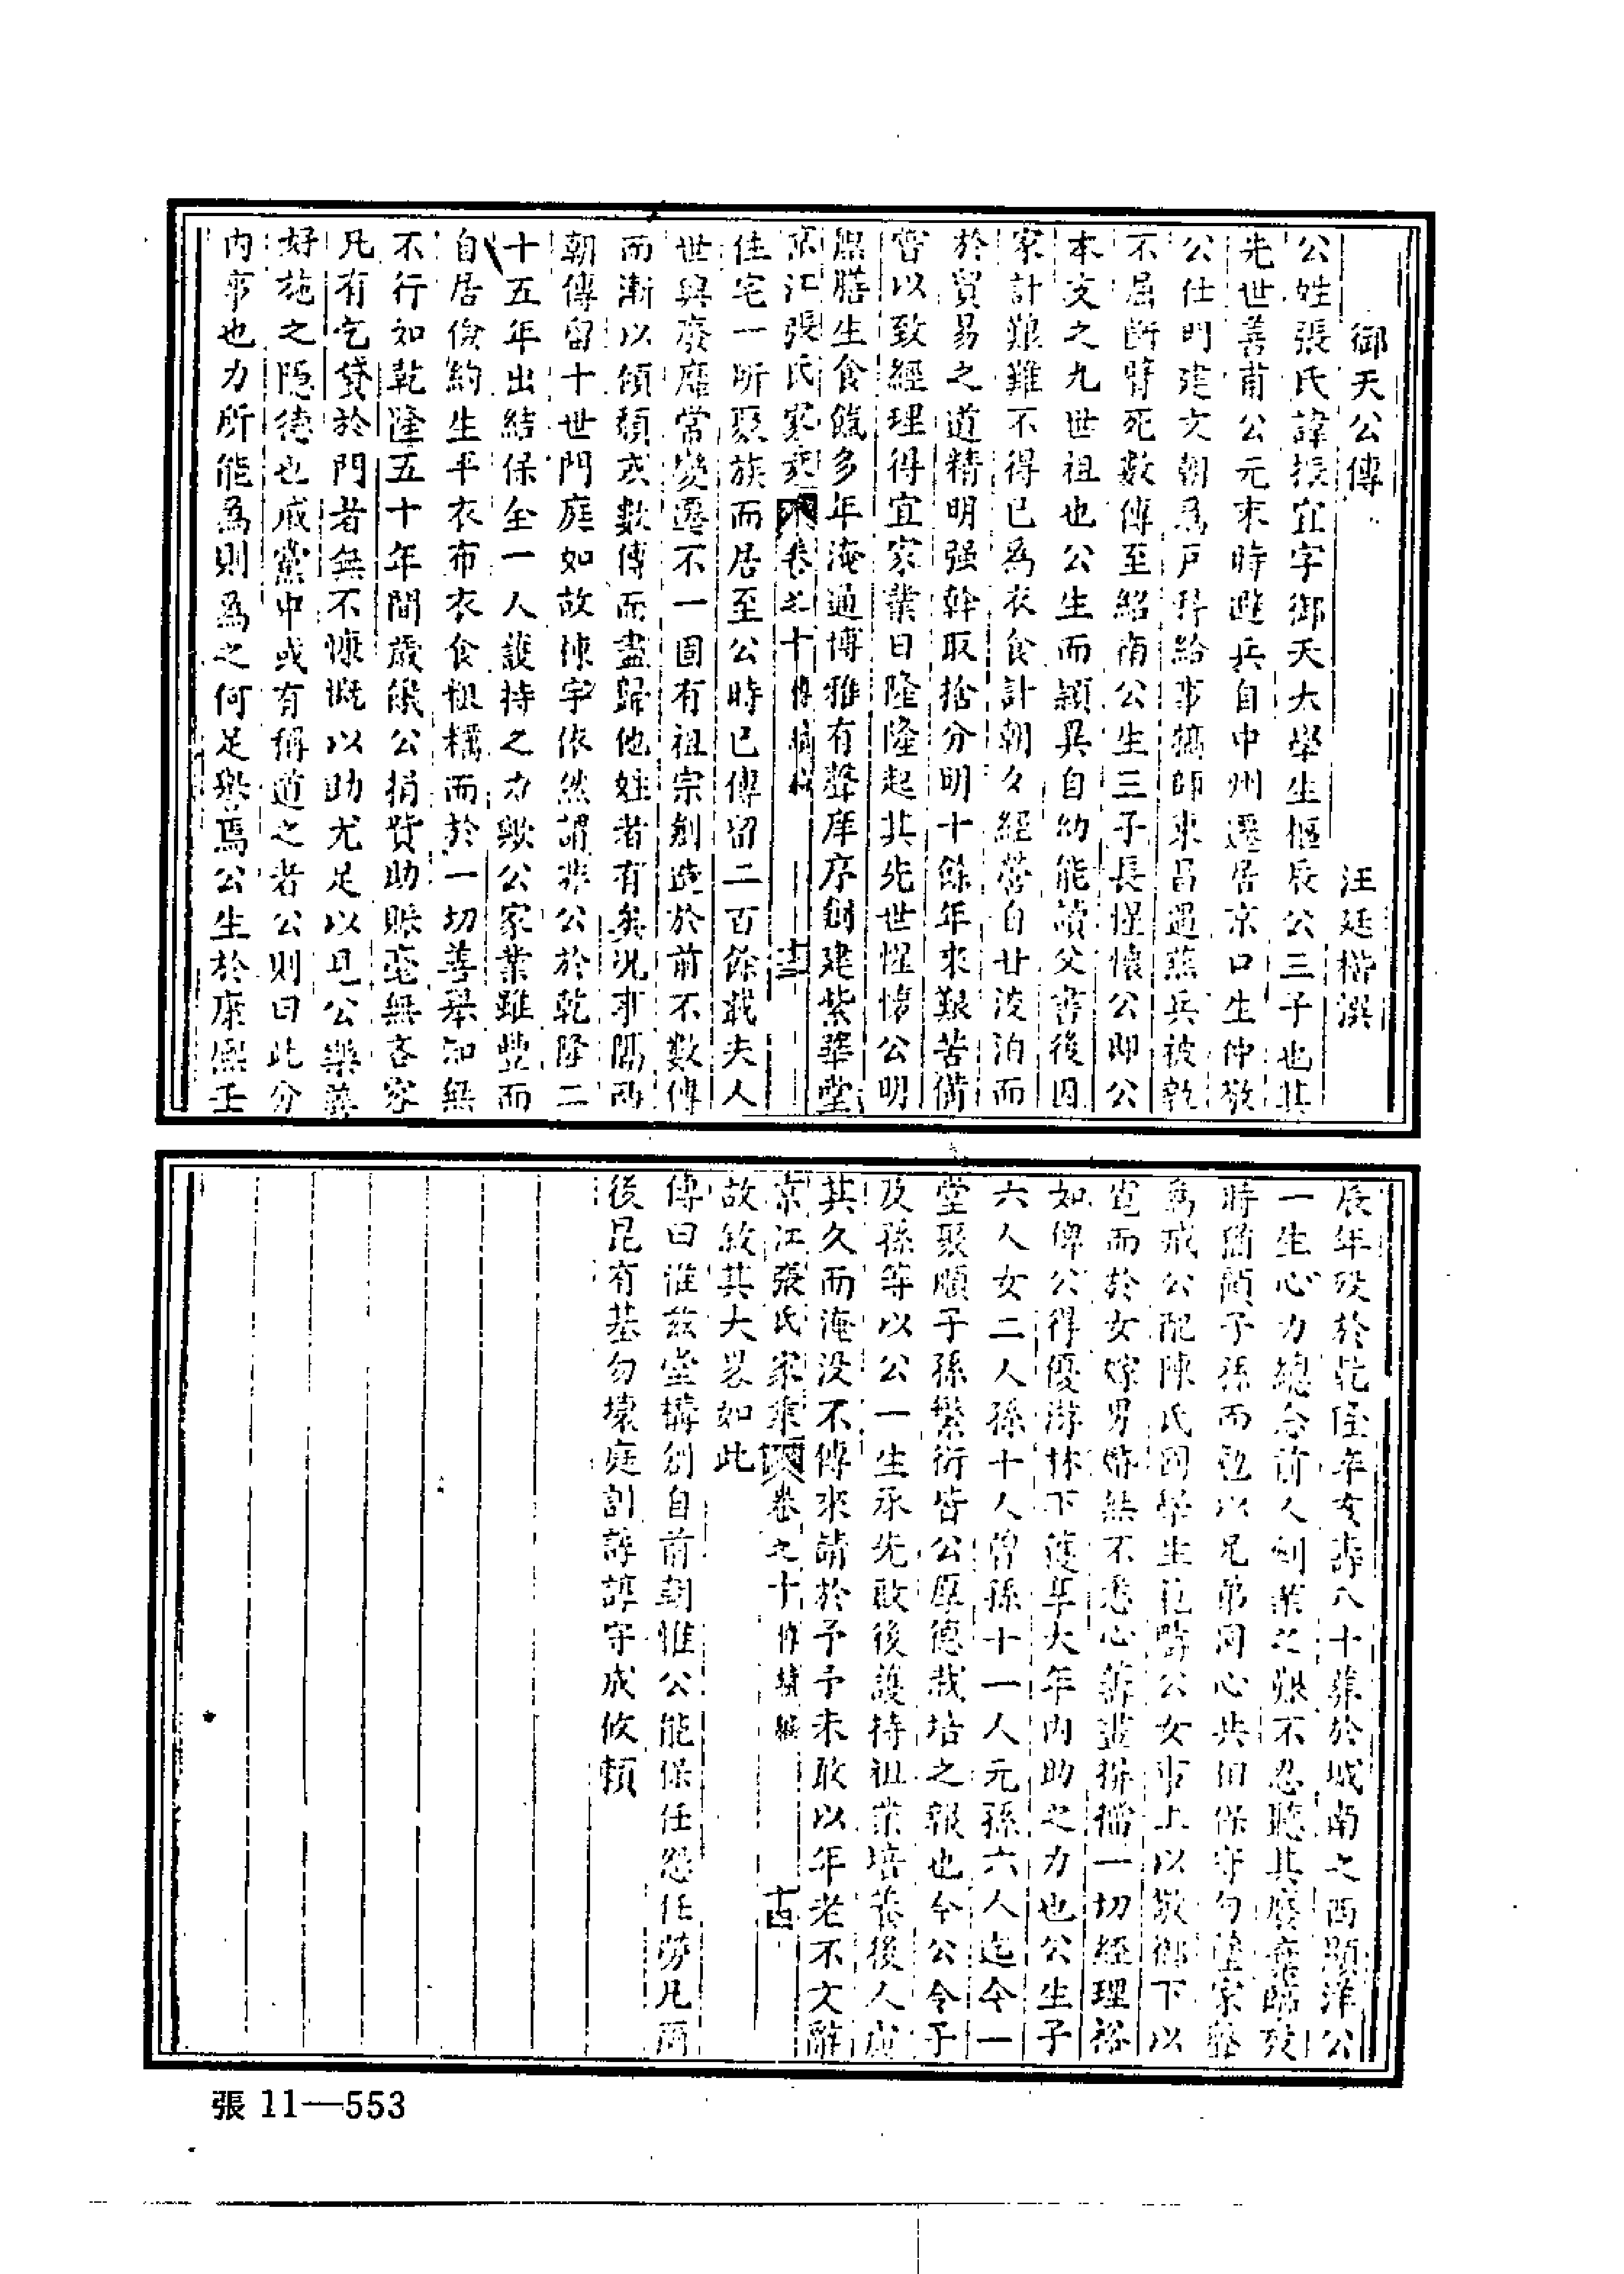 御天公傳
汪廷楷撰
公姓張氏諱振宜字御天大學生樞辰公三子也其
先世善甫公元末時避兵自中州遷居京口生仲敬
公仕明建文朝爲戸科給事犒師東昌遇燕兵被執
不屈斷臂死數傳至紹南公生三子長惺懷公即公
本支之九世祖也公生而穎異自幼能讀父書後因
家計艱難不得已爲衣食計朝夕經營自甘淡泊而
於貿易之道精明强幹取捨分明十餘年來艱苦備
嘗以致經理得宜家業日隆隆起其先世惺懷公明
廩膳生食餼多年淹通博雅有聲庠序創建紫華堂
京江張氏家乘 卷之十 傳續編 十三
住宅一所聚族而居至公時已傳留二百餘載夫人
世與廢靡常變遷不一固有祖宗創造於前不數傳
而漸以傾頹或數傳而盡歸他姓者有矣況事隔兩
朝傳留十世門庭如故棟宇依然謂非公於乾隆二
十五年出結保全一人護持之力歟公家業雖豐而
自居儉約生平衣布衣食粗糲而於一切善舉知無
不行如乾隆五十年間歲饑公捐貲助賑毫無吝容
凡有乞貸於門者無不慷慨以助尤足以見公樂善
好施之隱德也戚黨中或有稱道之者公則曰此分
內事也力所能爲則爲之何足譽焉公生於康熙壬
辰年歿於乾隆辛亥壽八十葬於城南之西顯洋公
一生心力總念前人創業之艱不忍聽其廢棄臨歿
時猶顧子孫而勉以兄弟同心共相保守勿墮家聲
爲戒公配陳氏國學生範疇公女事上以敬御下以
寬而於女嫁男婚無不悉心籌畫摒擋一切經理裕
如俾公得優游林下獲享大年內助之力也公生子
六人女二人孫十人曾孫十一人元孫六人迄今一
堂聚順子孫繁衍皆公厚德栽培之報也今公令子
及孫等以公一生承先啟後護持祖業培養後人慮
其久而淹没不傳來請於予予未敢以年老不文辭
京江張氏家乘 卷之十 傳續編 十四
故敘其大畧如此
傳曰惟玆堂構創自前朝惟公能保任怨任勞凡爾
後昆有基勿壞庭訓諄諄守成攸賴
張 11—553